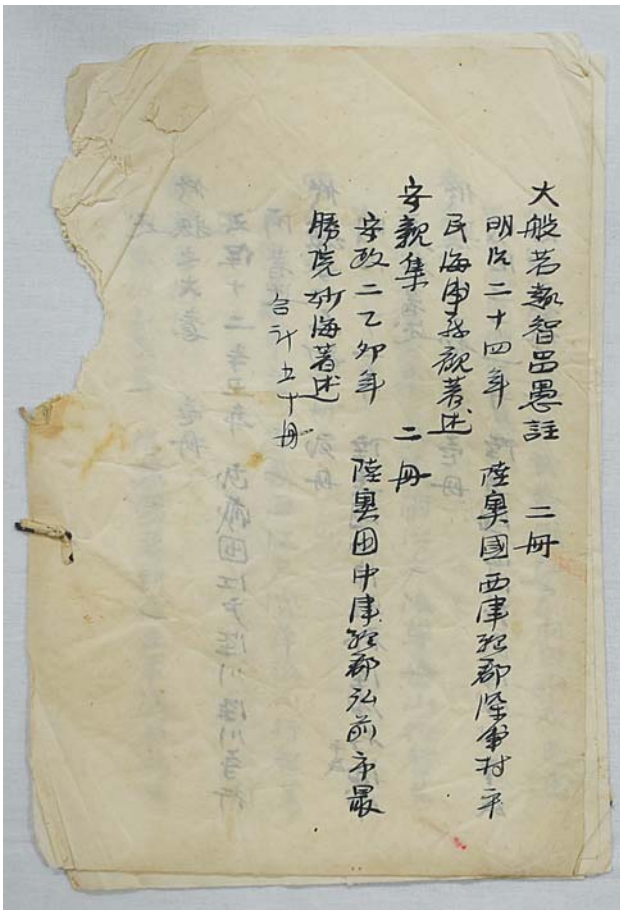 大般若㪅智畄愚註　二冊
明治二十四年　陸奥國西津軽郡深浦村平
民海浦義観著述
安親集　二冊
安政二乙卯年　陸奥国中津軽郡弘前市最
勝院妙海著述
合計五十冊